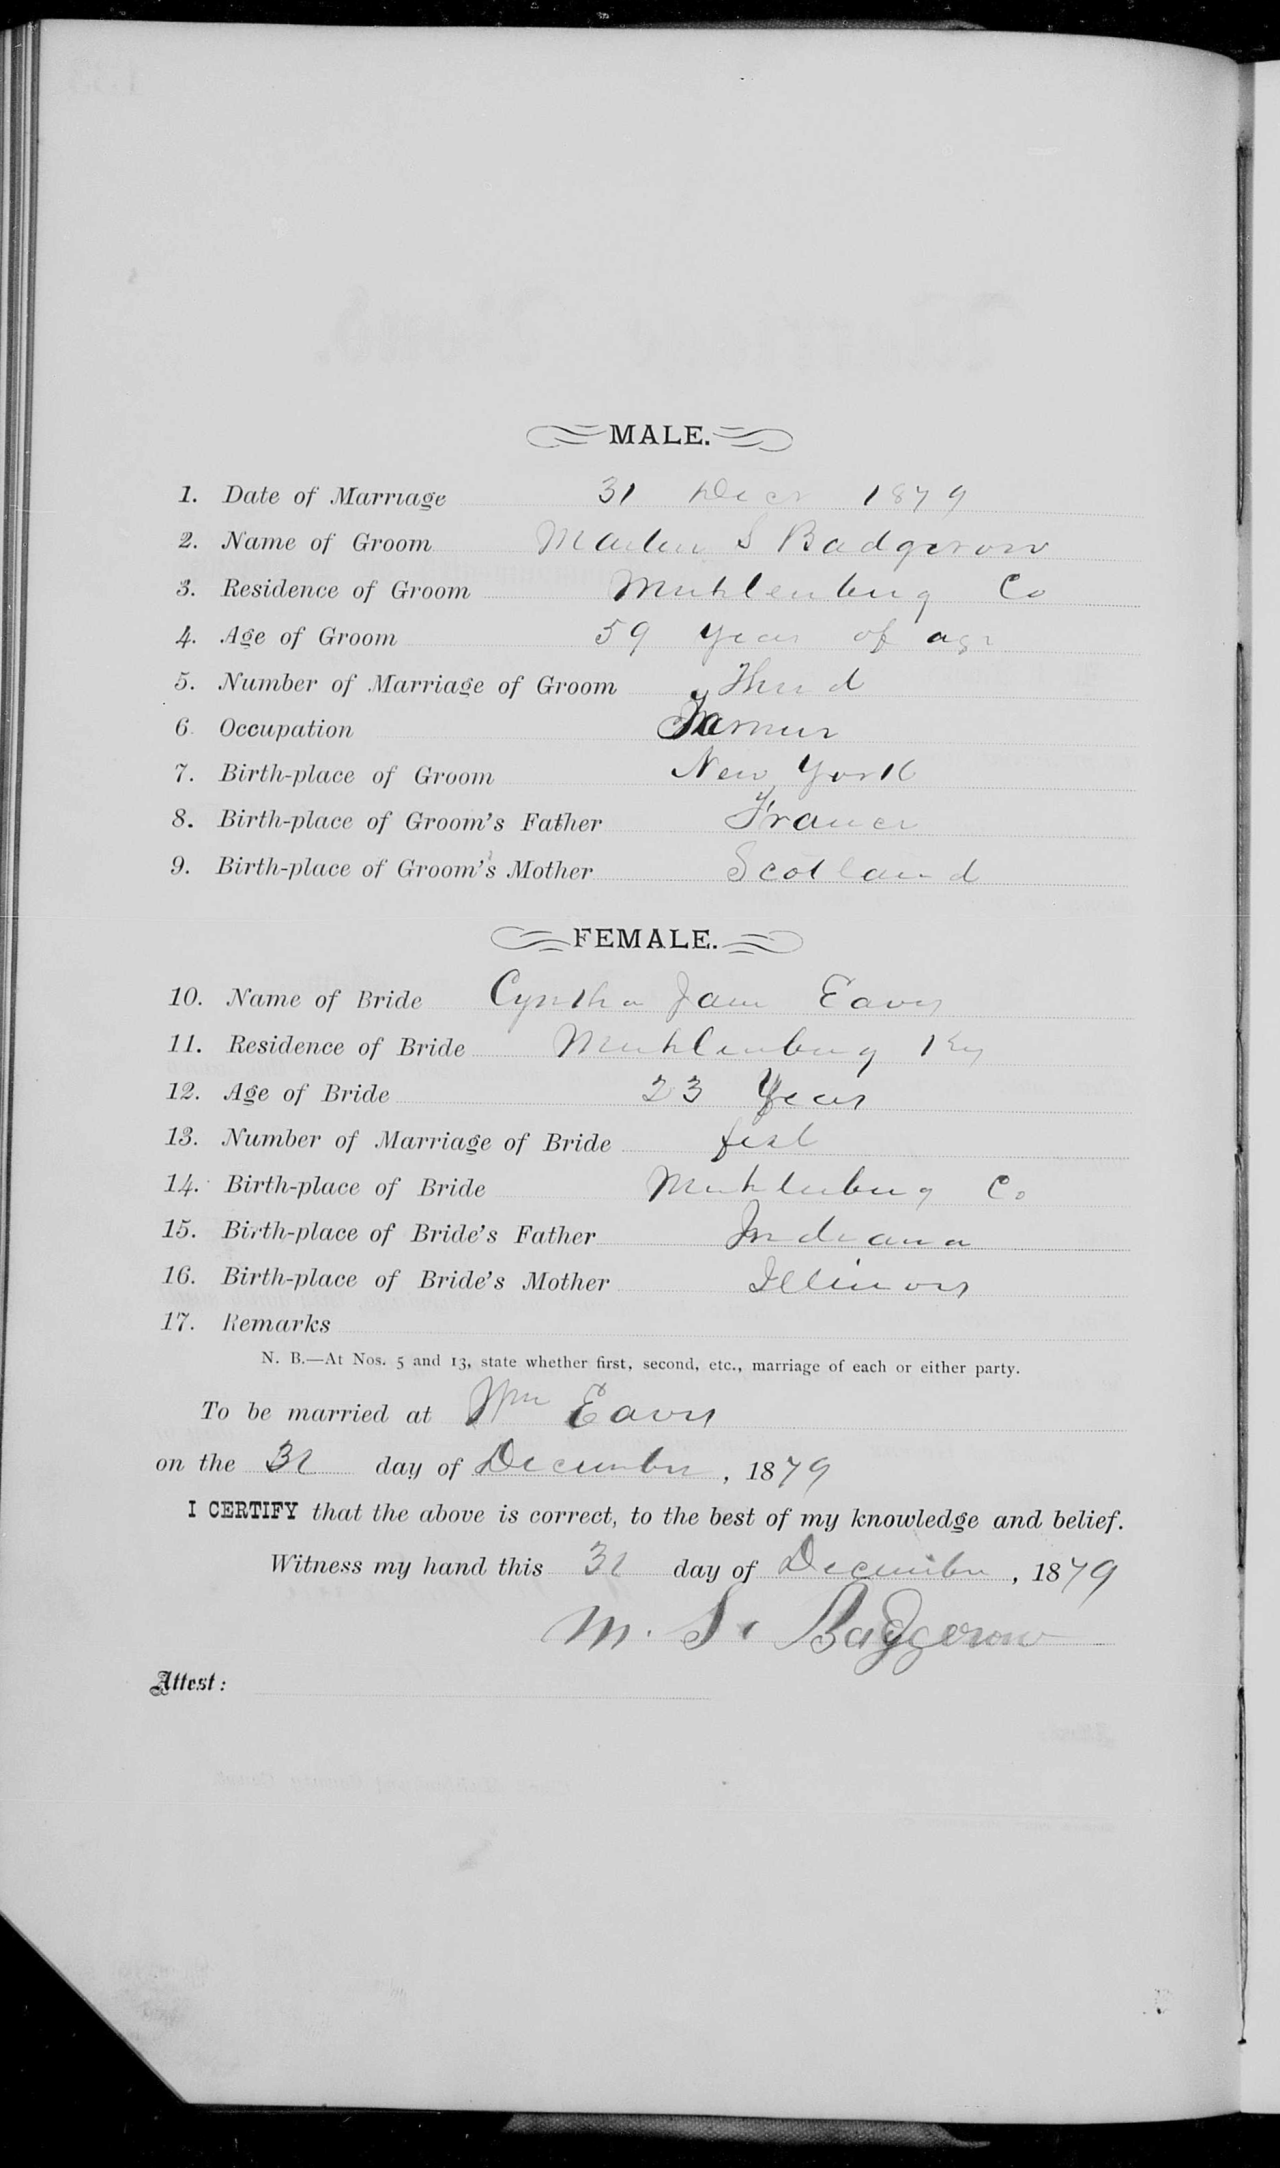 MALE.
1. Date of Marriage 31 Decr 1879
2. Name of Groom S Badgerow
3. Residence of Groom Muhlenburg Co
4. Age of Groom 59 years of age
5. Number of Marriage of Groom Third
6. Occupation Farmer
7. Birth-place of Groom New York
8. Birth-place of Groom's Father France
9. Birth-place of Groom's Mother Scotland
FEMALE.
10. Name of Bride Cyntha Jane Eaves
11. Residence of Bride Muhlenburg Ky
12. Age of Bride 23 Years
13. Number of Marriage of Bride first
14. Birth-place of Bride Muhlenburg Co
15. Birth-place of Bride's Father Indiana
16. Birth-place of Bride's Mother Illinois
17. Remarks
N. B.—At Nos. 5 and 13, state whether first, second, etc., marriage of each or either party.
To be married at Wm Eaves
on the 31 day of December, 1879
I CERTIFY that the above is correct, to the best of my knowledge and belief.
Witness my hand this 31 day of December, 1879
M. S. Badgerow
Attest: